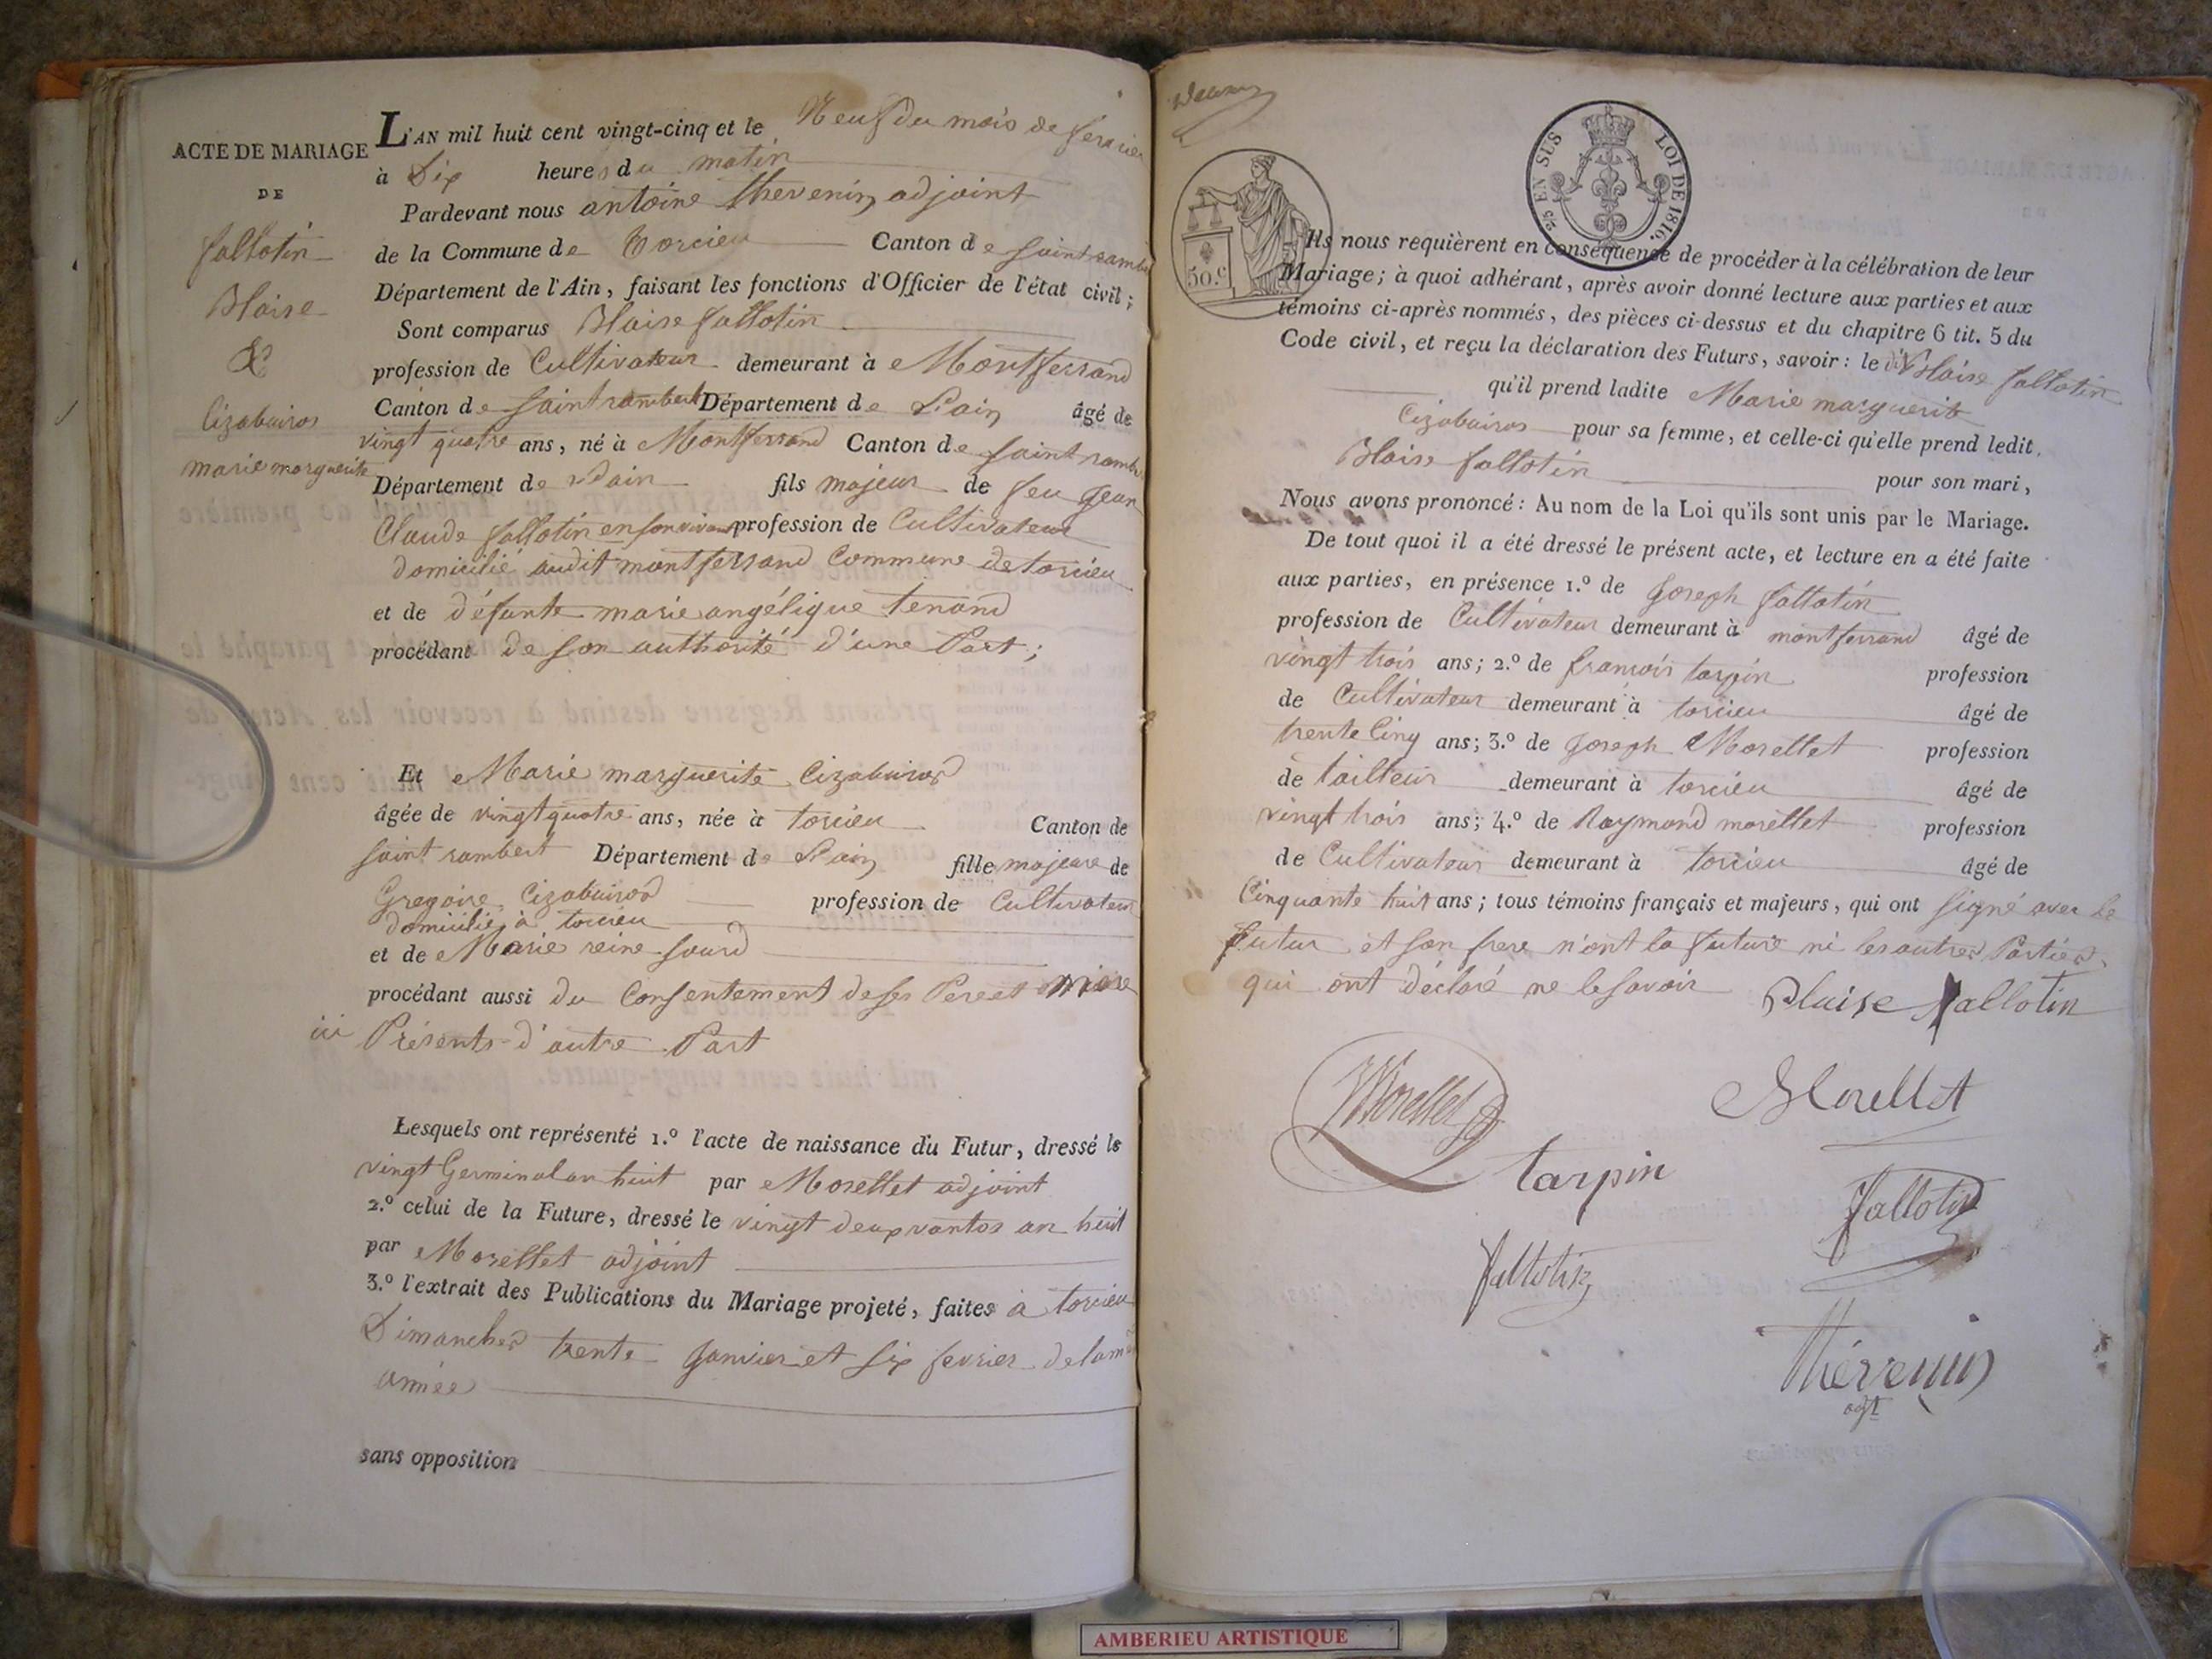 ACTE DE MARIAGE
DE
fallotin
Blaise
&
Cizabuiros
marie marguerite
L'AN mil huit cent vingt-cinq et le Neuf du mois de fevrier
à Dix heures du matin
Pardevant nous antoine thevenin adjoint
de la Commune de torcieu Canton de saint rambert
Département de l'Ain, faisant les fonctions d'Officier de l'état civil;
Sont comparus Blaise fallotin
profession de Cultivateur demeurant à Montferrand
Canton de saint rambert Département de L'ain âgé de
vingt quatre ans, né à Montferrand Canton de saint rambert
Département de L'ain fils majeur de feu Jean
Claude fallotin en son vivant profession de Cultivateur
domicilié audit montferrand Commune de torcieu
et de défunte marie angélique tenand
procédant de son authorité d'une Part;
Et Marie marguerite Cizabuiros
âgée de vingt quatre ans, née à torcieu Canton de
saint rambert Département de L'ain fille majeure de
Gregoire Cizabuiros profession de Cultivateur
domicilié à torcieu
et de Marie reine sourd
procédant aussi du Consentement de ses Pere et Mere
ici Présents d'autre Part
Lesquels ont représenté 1.º l'acte de naissance du Futur, dressé le
vingt Germinal an huit par Morellet adjoint
2.º celui de la Future, dressé le vingt deux vantos an huit
par Morellet adjoint
3.º l'extrait des Publications du Mariage projeté, faites à torcieu
Dimanches trente Janvier et six fevrier de la
année
sans opposition
2/5 EN SUS LOI DE 1816.
50.c
Ils nous requièrent en conséquence de procéder à la célébration de leur
Mariage; à quoi adhérant, après avoir donné lecture aux parties et aux
témoins ci-après nommés, des pièces ci-dessus et du chapitre 6 tit. 5 du
Code civil, et reçu la déclaration des Futurs, savoir: le dit Blaise fallotin
qu'il prend ladite Marie marguerite
Cizabuiros pour sa femme, et celle-ci qu'elle prend ledit
Blaise fallotin pour son mari,
Nous avons prononcé: Au nom de la Loi qu'ils sont unis par le Mariage.
De tout quoi il a été dressé le présent acte, et lecture en a été faite
aux parties, en présence 1.º de Joseph fallotin
profession de Cultivateur demeurant à montferrand âgé de
vingt trois ans; 2.º de francois tarpin profession
de Cultivateur demeurant à torcieu âgé de
trente Cinq ans; 3.º de Joseph Morellet profession
de tailleur demeurant à torcieu âgé de
vingt trois ans; 4.º de Raymond morellet profession
de Cultivateur demeurant à torcieu âgé de
Cinquante huit ans; tous témoins français et majeurs, qui ont signé avec le
futur et son frere n'ont la future ni les autres Parties
qui ont déclaré ne le savoir Blaise fallotin
Morellet
Morellet
tarpin
fallotin
fallotin
Thévenin
adjt
AMBERIEU ARTISTIQUE